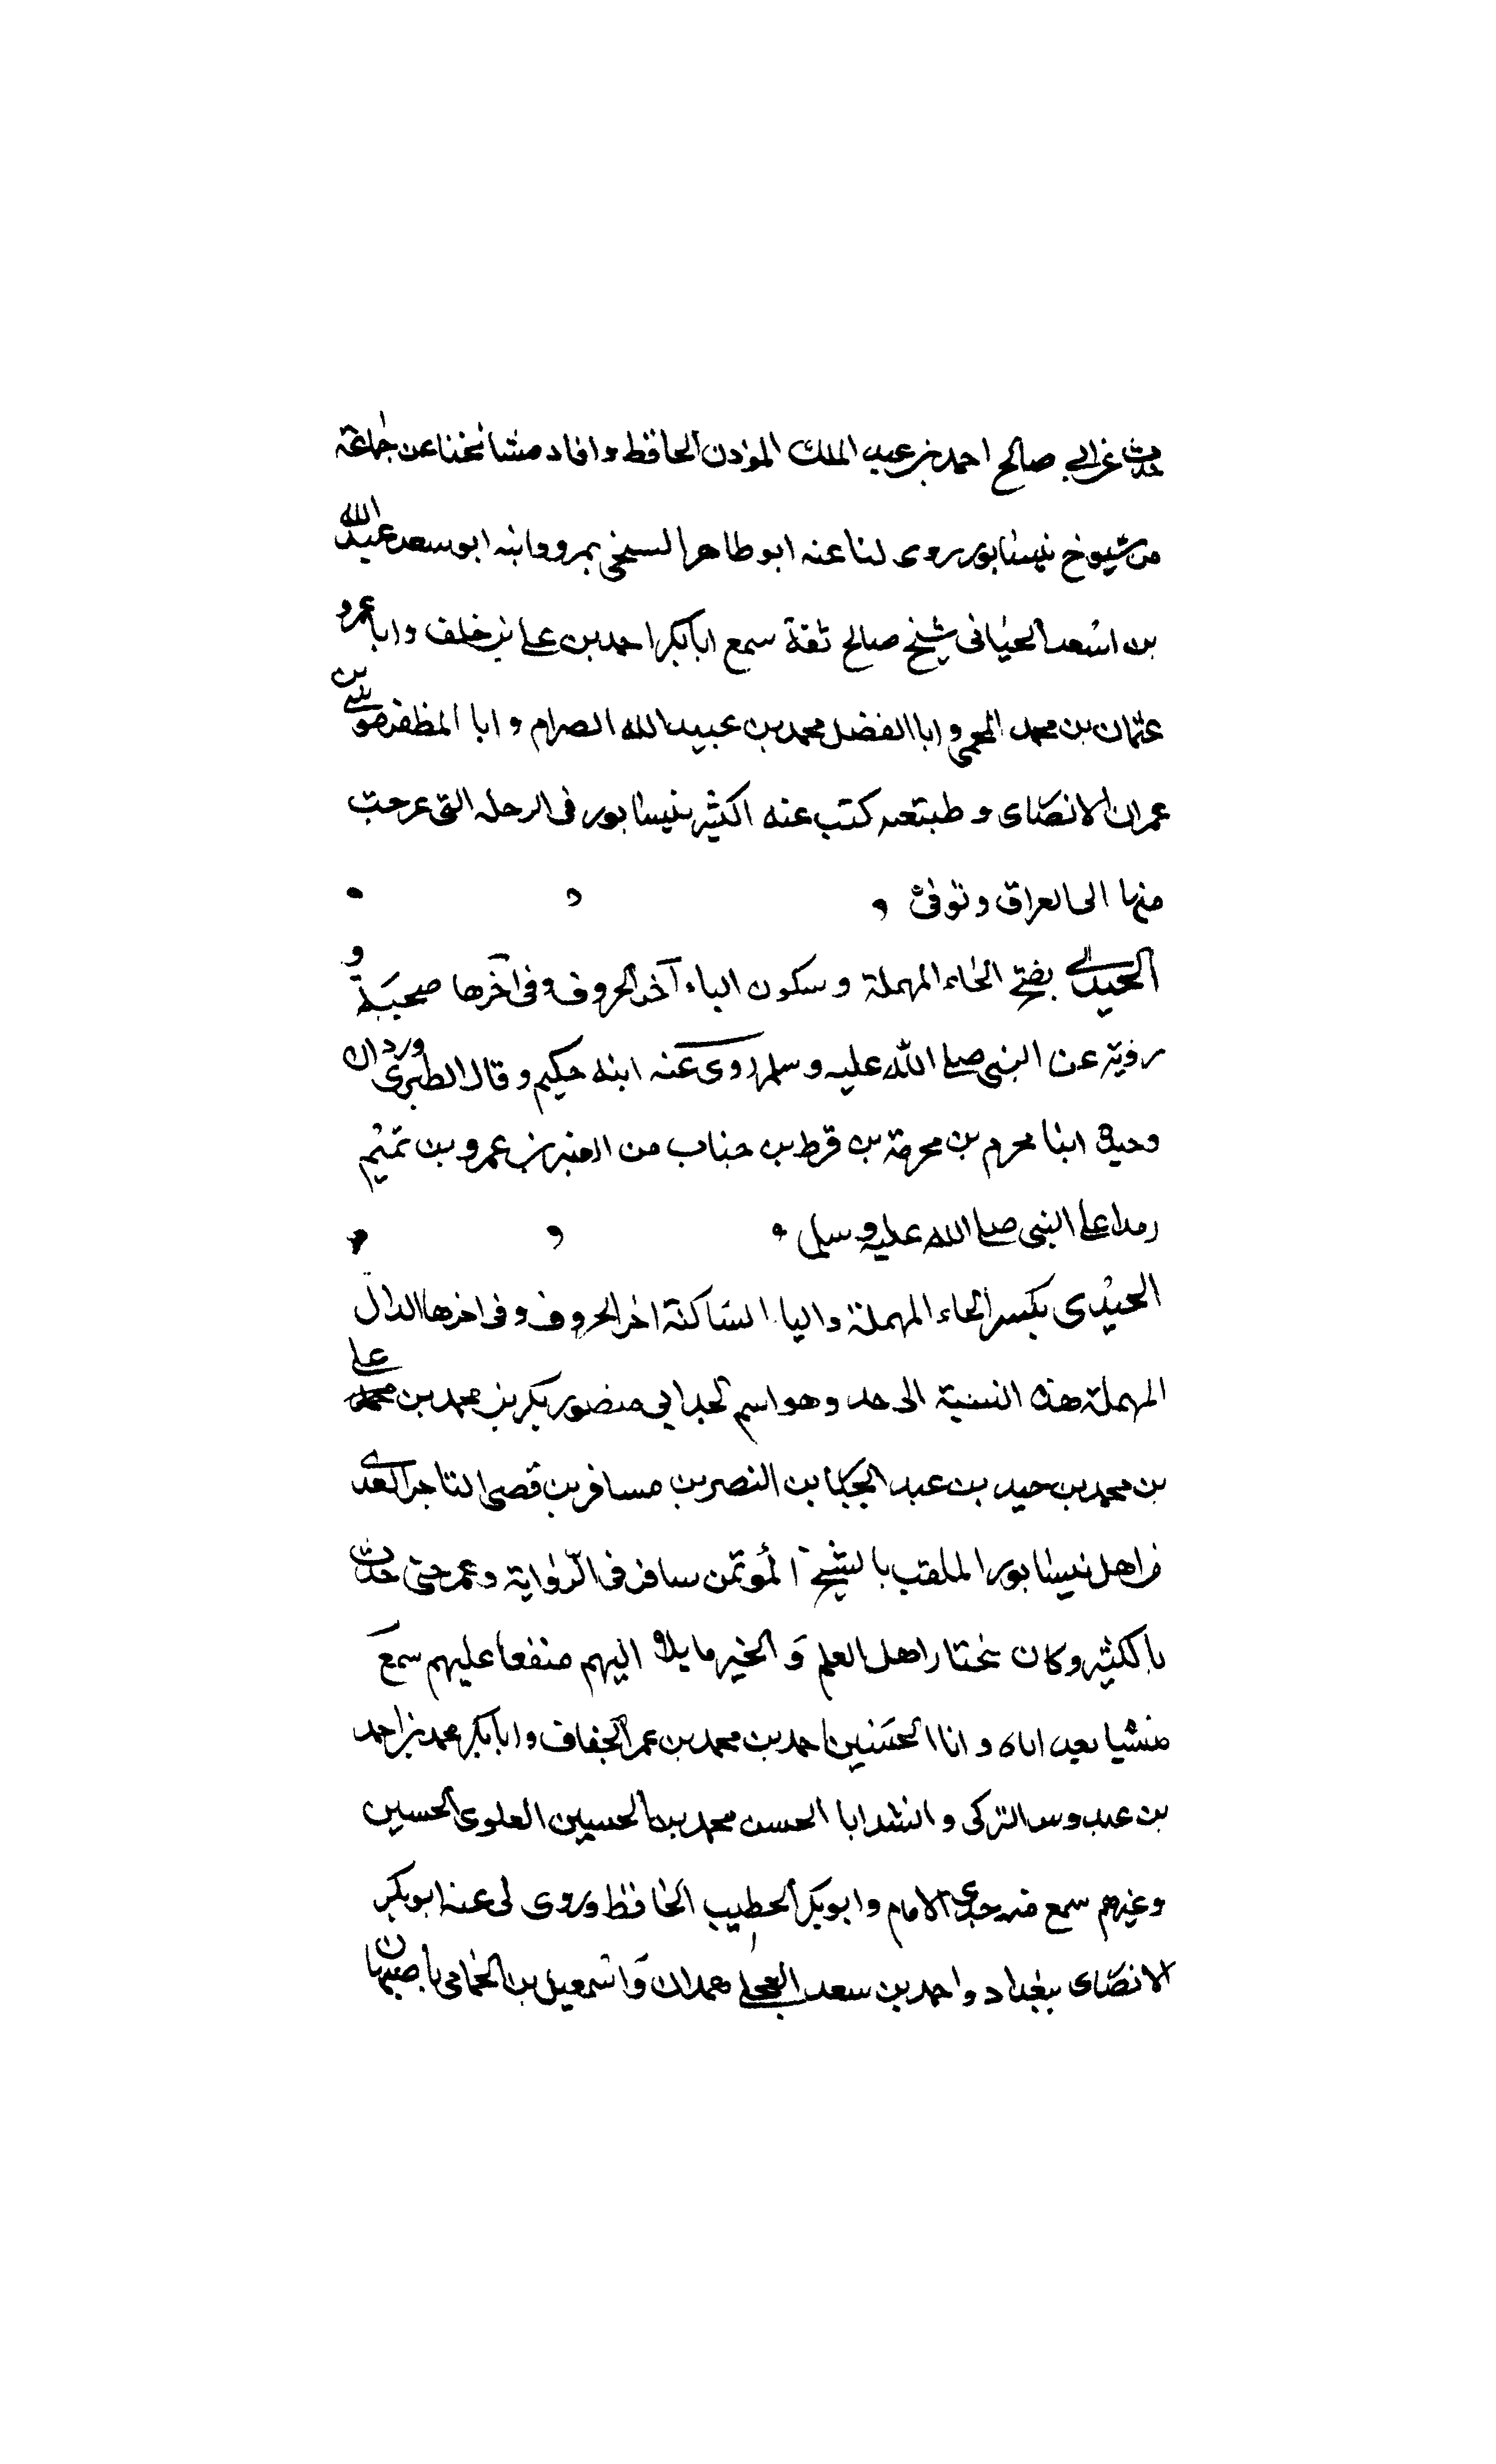 حدث عن ابى صالح احمد بن عبد الملك المؤذن الحافظ وافاد مشائخنا عن جماعة
من شيوخ نيسابور روى لنا عنه ابو طاهر السنجى بمرو وابنه ابو سعد عبد الله
بن اسعد الحيانى شيخ صالح ثقة سمع ابا بكر احمد بن على بن خلف وابا عمرو
عثمان بن محمد المحمى وابا الفضل محمد بن عبيد الله الصرام وابا المظفر موسى بن
عمران الانصاى و طبتعه كتب عنه اكثير بنيسابور فى الرحله التى عرجت
منها الى العراق وتوفى
بفتح الحاء المهملة و سكون الياء آخر الحروف وفى آخرها صحبة و
رؤية عن النبى صلى الله عليه وسلم روى عنه ابنه حكيم و قال الطبرى وردان
وحيده ابنا محرم بن محرمة بن قرط بن جناب من العنبر بن عمرو بن تميم
على النبى صلى الله عليه وسلم
الحيدى بكسر الحاء المهملة واليا الساكنة اخر الحروف وفى اخرها الدال
المهملة هذه النسبة الى حد وهو اسم لجد ابى منصور بكر بن محمد بن محمد على
بن محمد بن حيد بن عبد الجبار بن النصر بن مسافر بن قصى التاجر
من اهل نيسابور الملقب بالشيخ المؤتمن سافر فى الرواية وعمر حتى حدث
بالكثير وكان يختار اهل العلم و الخير مايلا اليهم منفعا عليهم سمع
اباه و ابا الحسين احمد بن محمد بن عمر الخفاف وابا بكر محمد بن احمد
بن عبدوس التركى و ابا الحسن محمد بن الحسين العلوى الحسين
وغيرهم سمع منه جدى الامام وابو بكر الخطيب الحافظ وروى لى عنه ابو بكر
الانصاى ببغداد واحمد بن سعد العجلى همدان واسمعيل بن الحمامى باصبهان